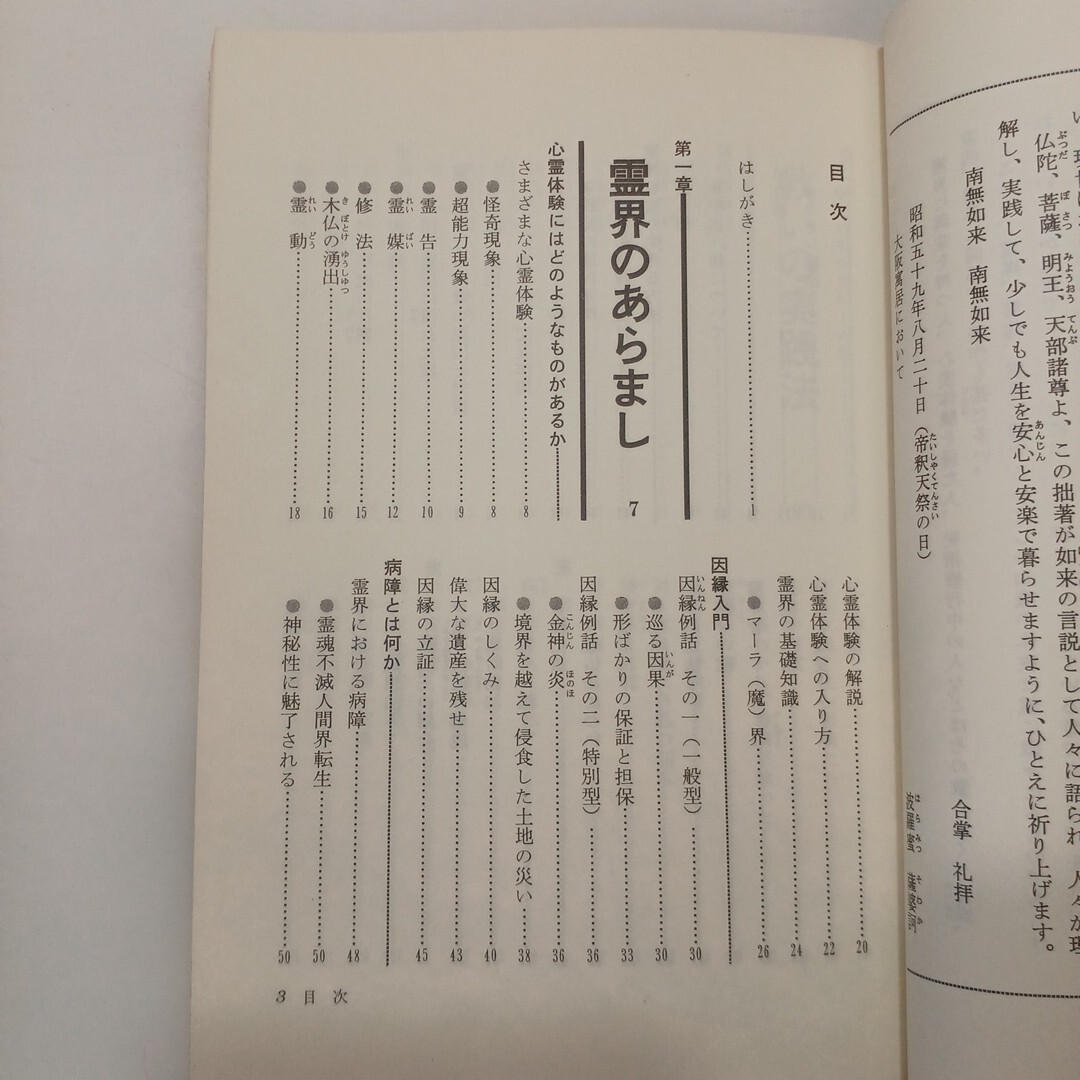 仏陀、菩薩、明王、天部諸尊よ、この拙著が如来の言説として人々に語られ、人々が理
解し、実践して、少しでも人生を安心と安楽で暮らせますように、ひとえに祈り上げます。
南無如来　南無如来
合掌　礼拝
昭和五十九年八月二十日（帝釈天祭の日）
大阪寓居において
目次
はしがき……1
第一章
霊界のあらまし　7
心霊体験にはどのようなものがあるか……
さまざまな心霊体験……8
●怪奇現象……8
●超能力現象……9
●霊告……10
●霊媒……12
●修法……15
●木仏の湧出……16
●霊動……18
心霊体験の解説……20
心霊体験への入り方……22
霊界の基礎知識……24
●マーラ（魔）界……26
因縁入門……
因縁例話　その一（一般型）……30
●巡る因果……30
●形ばかりの保証と担保……33
因縁例話　その二（特別型）……36
●金神の炎……36
●境界を越えて侵食した土地の災い……38
因縁のしくみ……40
偉大な遺産を残せ……43
因縁の立証……45
病障とは何か……
霊界における病障……48
●霊魂不滅人間界転生……50
●神秘性に魅了される……50
3　目次